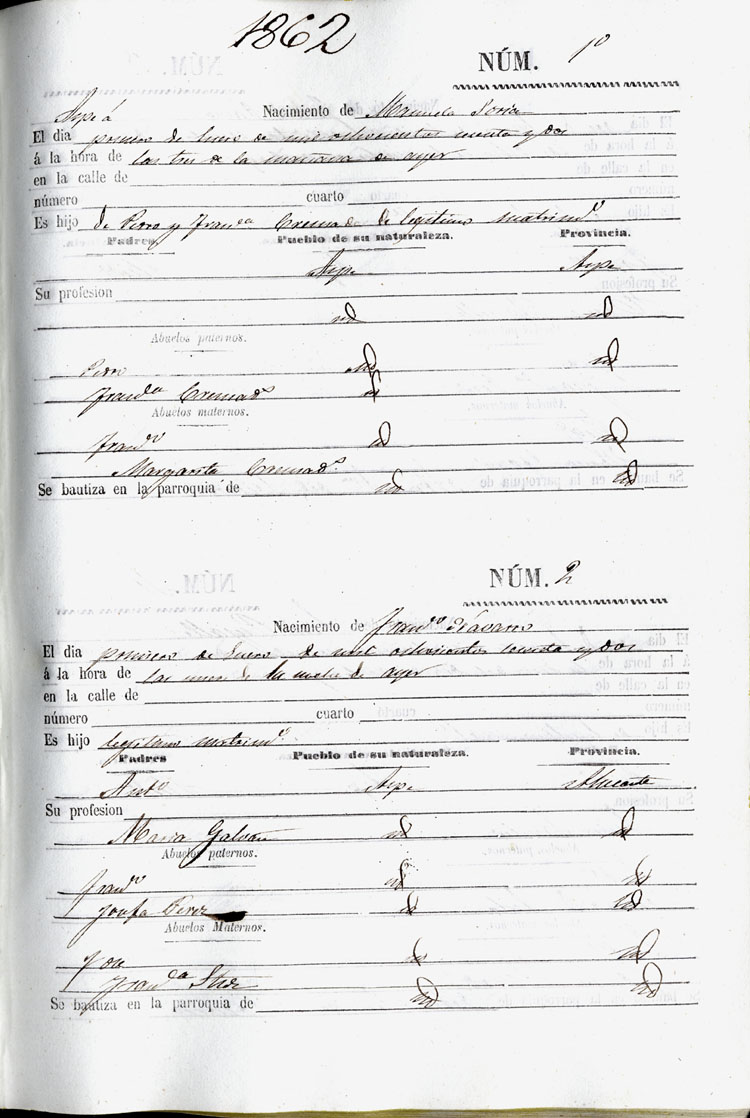 1862
NÚM. 1º
Aspe á Nacimiento de Manuela Soria
El dia primero de Enero de mil ochocientos sesenta y dos
á la hora de las tres de la mañana de ayer
en la calle de
número cuarto
Es hijo de Pedro y Franca Cremads de legitimo matrimo
Padres. Pueblo de su naturaleza. Provincia.
Aspe Aspe
Su profesion
id id
Abuelos paternos.
Pedro id id
Franca Cremads id
Abuelos maternos.
Franco id id
Margarita Cremads
Se bautiza en la parroquia de id id
NÚM. 2
Nacimiento de Franco
El dia primero de Enero de mil ochocientos sesenta y dos
á la hora de las nueve de la noche de ayer
en la calle de
número cuarto
Es hijo legitimo matrimo
Padres Pueblo de su naturaleza. Provincia.
Anto Aspe Alicante
Su profesion
Maria Galvan id id
Abuelos paternos.
Franco id id
Josefa Perez id id
Abuelos Maternos.
Jose id id
Franca
Se bautiza en la parroquia de id id